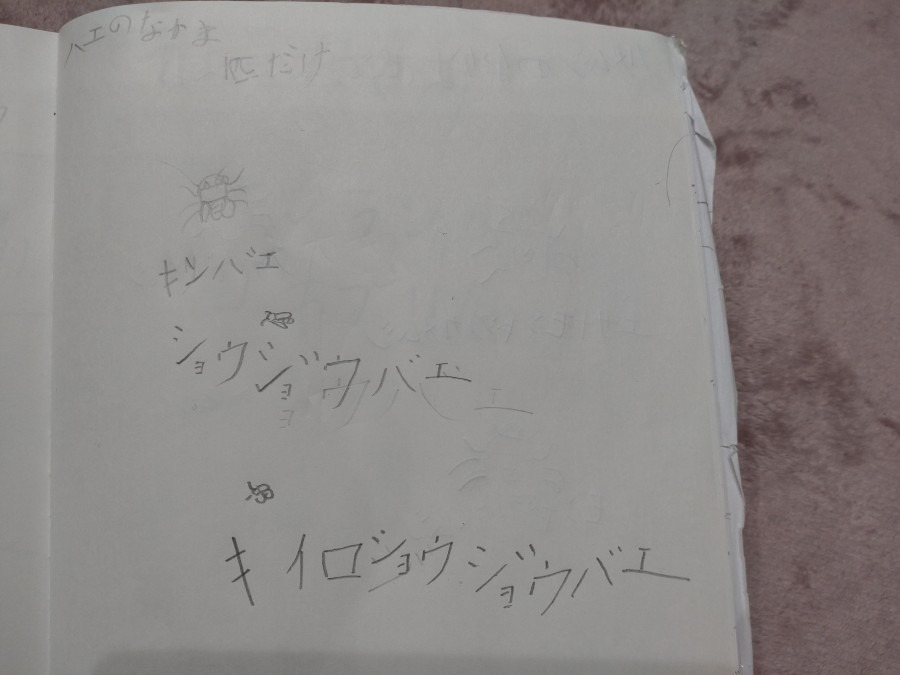 ハエのなかま
匹だけ
キンバエ
ショウジョウバエ
キイロショウジョウバエ